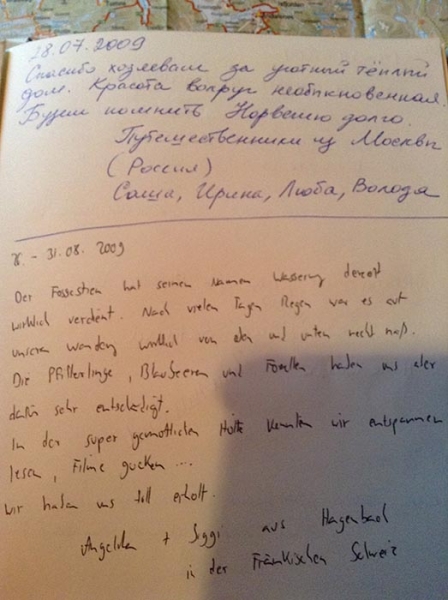 28.07.2009
Спасибо хозяевам за уютный тёплый
дом. Красота вокруг необыкновенная
Будем помнить Норвегию долго.
Путешественники из Москвы
(Россия)
Саша, Ирина, Люба, Володя
- 31.08.2009
Der hat seinen Namen
wirklich verdient. Nach vielen Tagen Regen war es auf
unseren wirklich von oben und unten recht naß.
Die Pfifferlinge, Blaubeeren und Forellen haben uns aber
dafür sehr entschädigt.
In der super gemütlichen Hütte konnten wir entspannen
lesen, Filme gucken ...
wir haben uns toll erholt.
Angelika + Siggi aus Hagenbach
in der Fränkischen Schweiz